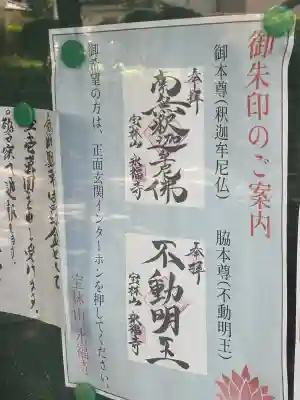 御朱印のご案内
御本尊(釈迦牟尼仏)
脇本尊(不動明王)
奉拝
南無釈迦牟尼佛
宝林山 永福寺
奉拝
不動明王
宝林山 永福寺
御希望の方は、正面玄関インターホンを押してください。
宝林山 永福寺